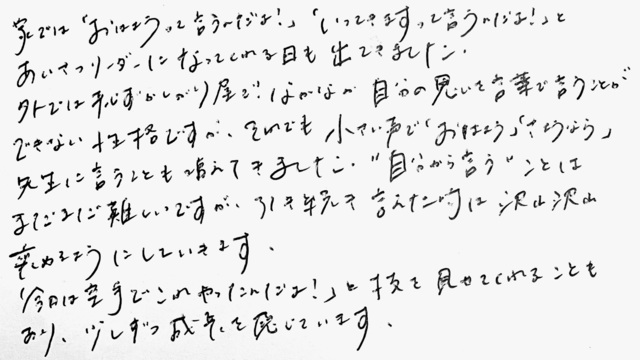 家では「おはようって言うんだよ!」「いってきますって言うんだよ!」と
あいさつリーダーになってくれる日も出てきました。
外では恥ずかしがり屋で、なかなか自分の思いを言葉で言うことが
できない性格ですが、それでも小さい声で「おはよう」「さようなら」
先生に言うことも増えてきました。"自分から言う"ことは
まだまだ難しいですが、引き続き言えた時は沢山沢山
褒めるようにしていきます。
「今日は空手でこれやったんだよ!」と技を見せてくれることも
あり、少しずつ成長を感じています。